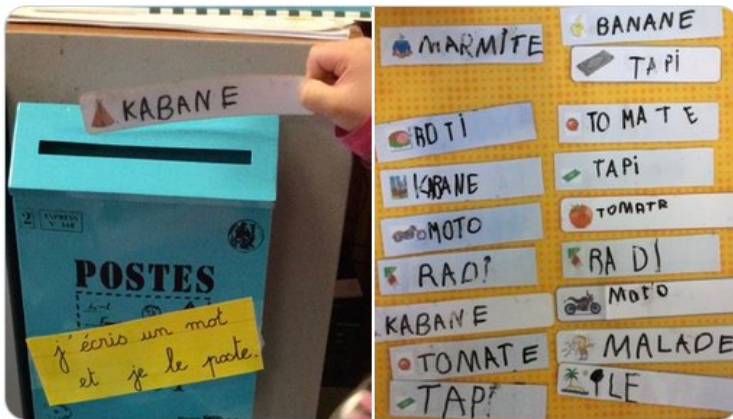 KABANE
2
EXPRESS
POSTES
j'écris un mot
et je le poste.
MARMITE
ROTI
KABANE
MOTO
RADI
KABANE
TOMATE
TAPI
BANANE
TAPI
TOMATE
TAPI
TOMATR
RADI
MOTO
MALADE
ILE